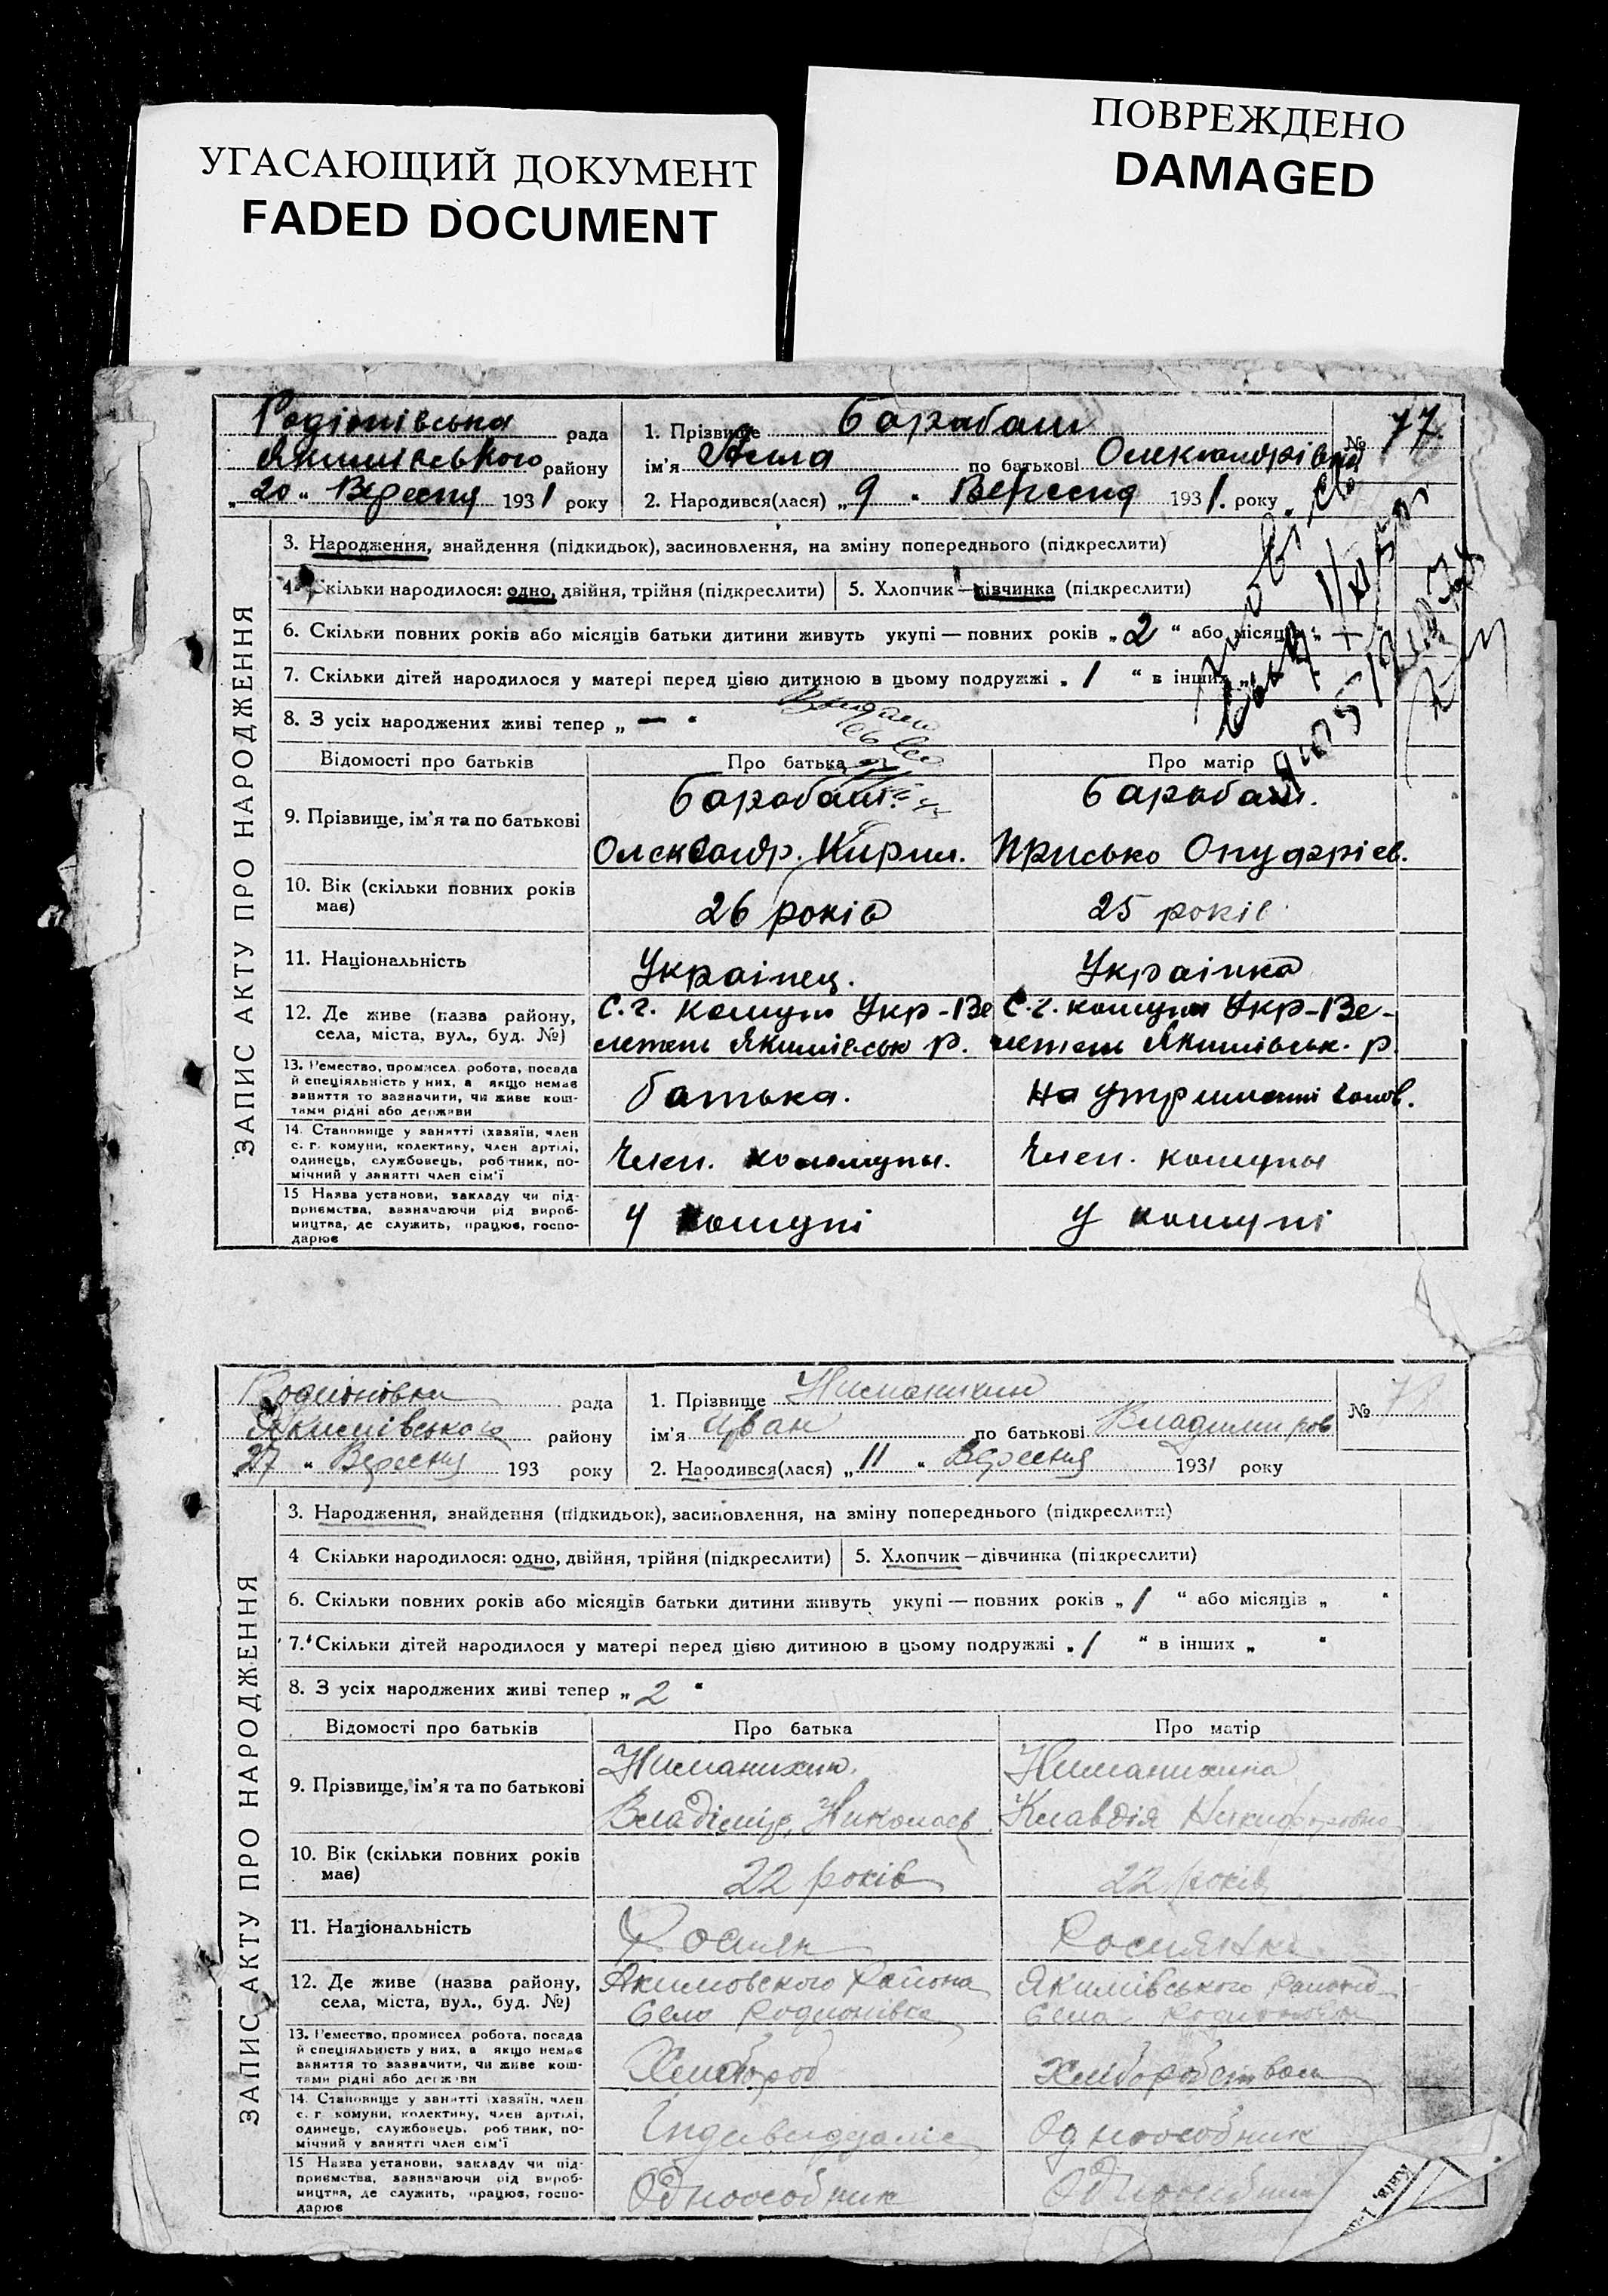 УГАСАЮЩИЙ ДОКУМЕНТ
FADED DOCUMENT
ПОВРЕЖДЕНО
DAMAGED
Родіонівська рада
Якимівського району
„20“ Вересня 1931 року
1. Прізвище Барабаш
ім'я Алла по батькові Олександрівна
2. Народився(лася) „9“ Вересня 1931. року
№ 77
ЗАПИС АКТУ ПРО НАРОДЖЕННЯ
3. Народження, знайдення (підкидьок), засиновлення, на зміну попереднього (підкреслити)
4. Скільки народилося: одно, двійня, трійня (підкреслити)
5. Хлопчик — дівчинка (підкреслити)
6. Скільки повних років або місяців батьки дитини живуть укупі — повних років „2“ або місяців „
7. Скільки дітей народилося у матері перед цією дитиною в цьому подружжі „1“ в інших „
8. З усіх народжених живі тепер „—“
Відомості про батьків
Про батька
Про матір
9. Прізвище, ім'я та по батькові
Барабаш.
Олександр. Кирил.
Барабаш.
Присько Онуфріев.
10. Вік (скільки повних років має)
26 років
25 років
11. Національність
Українец.
Українка
12. Де живе (назва району, села, міста, вул., буд. №)
С.г. комуна Укр-Ве
летень Якимівсько р.
С.г. комуна Укр-Ве-
летень Якимівськ. р.
13. Ремество, промисел, робота, посада
й спеціяльність у них, а якщо немає
заняття то зазначити, чи живе кош-
тами рідні або держави
батька.
на утриманні голов.
14. Становище у занятті (хазяїн, член
с. г. комуни, колективу, член артілі,
одинець, службовець, робітник, по-
мічний у занятті член сім'ї
Член. комуны.
Член. комуны
15 Назва установи, закладу чи під-
приємства, зазначаючи рід вироб-
ництва, де служить, працює, госпо-
дарює
у комуні
у комуні
Родионовки рада
Якимівського району
„27“ Вересня 193 року
1. Прізвище Ниманихин
ім'я Іван по батькові Владимиров
2. Народився(лася) „11“ Вересня 1931 року
№ 78
ЗАПИС АКТУ ПРО НАРОДЖЕННЯ
3. Народження, знайдення (підкидьок), засиновлення, на зміну попереднього (підкреслити)
4 Скільки народилося: одно, двійня, трійня (підкреслити)
5. Хлопчик — дівчинка (підкреслити)
6. Скільки повних років або місяців батьки дитини живуть укупі — повних років „1“ або місяців „ “
7. Скільки дітей народилося у матері перед цією дитиною в цьому подружжі „1“ в інших „ “
8. З усіх народжених живі тепер „2“
Відомості про батьків
Про батька
Про матір
9. Прізвище, ім'я та по батькові
Ниманихин.
Владімір, Николаев
Ниманихина
Клавдія Никифоровна
10. Вік (скільки повних років має)
22 років
22 років
11. Національність
Росиян
Росиянка
12. Де живе (назва району, села, міста, вул., буд. №)
Якимовского Района
Село Родионівка
Якимівського Району
Село
13. Ремество, промисел, робота, посада
й спеціяльність у них, а якщо немає
заняття то зазначити, чи живе кош-
тами рідні або держави
Хлібороб
Хліборобством
14. Становище у занятті (хазяїн, член
с. г. комуни, колективу, член артілі,
одинець, службовець, робітник, по-
мічний у занятті член сім'ї
Одноособник
15 Назва установи, закладу чи під-
приємства, зазначаючи рід вироб-
ництва, де служить, працює, госпо-
дарює
Одноособник
Одноособник
Київ,